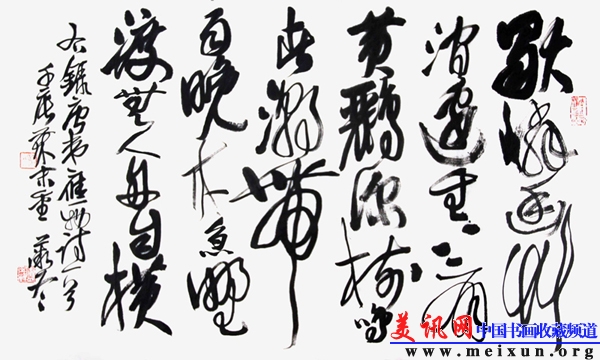 獨憐幽草
澗邊生上有
黄鸝深樹鳴
春潮帶
雨晚来急野
渡無人舟自横
右録唐韦應物詩一首
壬辰
美讯网 中国书画收藏频道
www.meixun.org